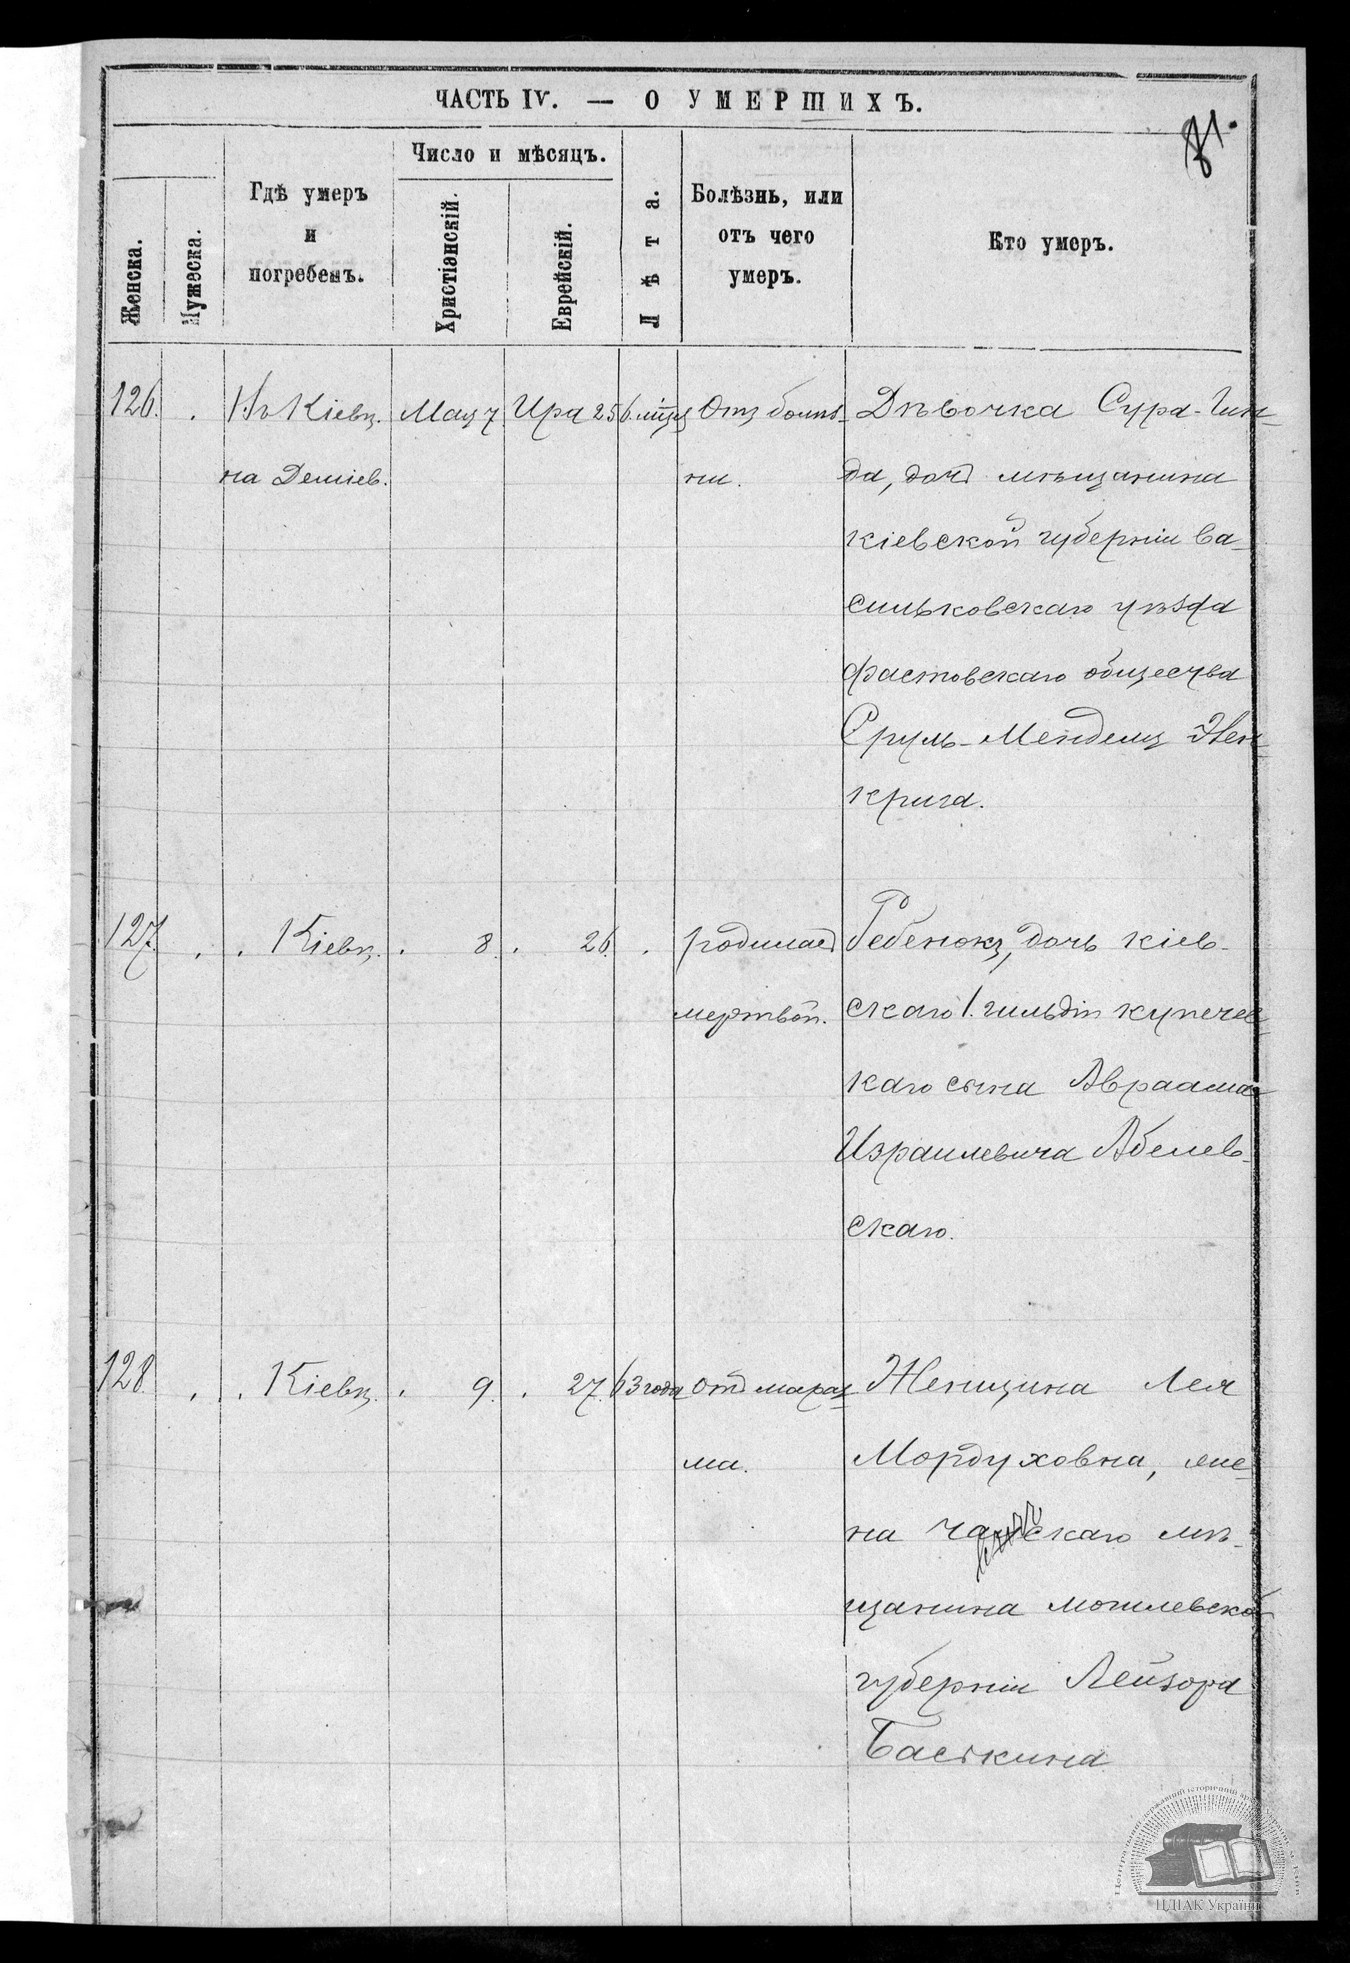 ЧАСТЬ IV. — О УМЕРШИХЪ.
Женска.
Мужеска.
Гдѣ умеръ
и
погребенъ.
Число и мѣсяцъ.
Христіанскій.
Еврейскій.
Лѣта.
Болѣзнь, или
отъ чего
умеръ.
Кто умеръ.
126. . Въ Кіевѣ Мая 7 Ира 25 Отъ болѣз- Дѣвочка Сура-Гин-
на Деміев. ни. да, дочь мѣщанина
кіевской губерніи Ва-
сильковскаго уѣзда
фастовскаго общества
Сруль-Мендель
крига.
127. . . Кіевѣ . 8. . 26. . родилась Ребенокъ, дочь кіев-
мертвой. скаго 1. гильдіи купечес-
каго сына Авраама
Израилевича Абелев-
скаго.
128. . . Кіевѣ . 9. . 27. 63 года отъ мараз- Женщина Лея
ма. Мордуховна, же-
на мѣ-
щанина могилевской
губерніи Лейзора
Баськина
ЦДІАК України